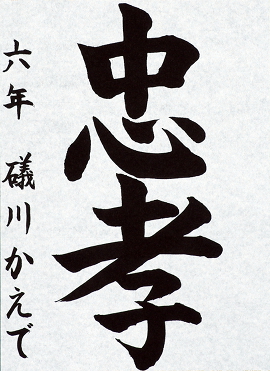 忠孝
六年 礒川かえで